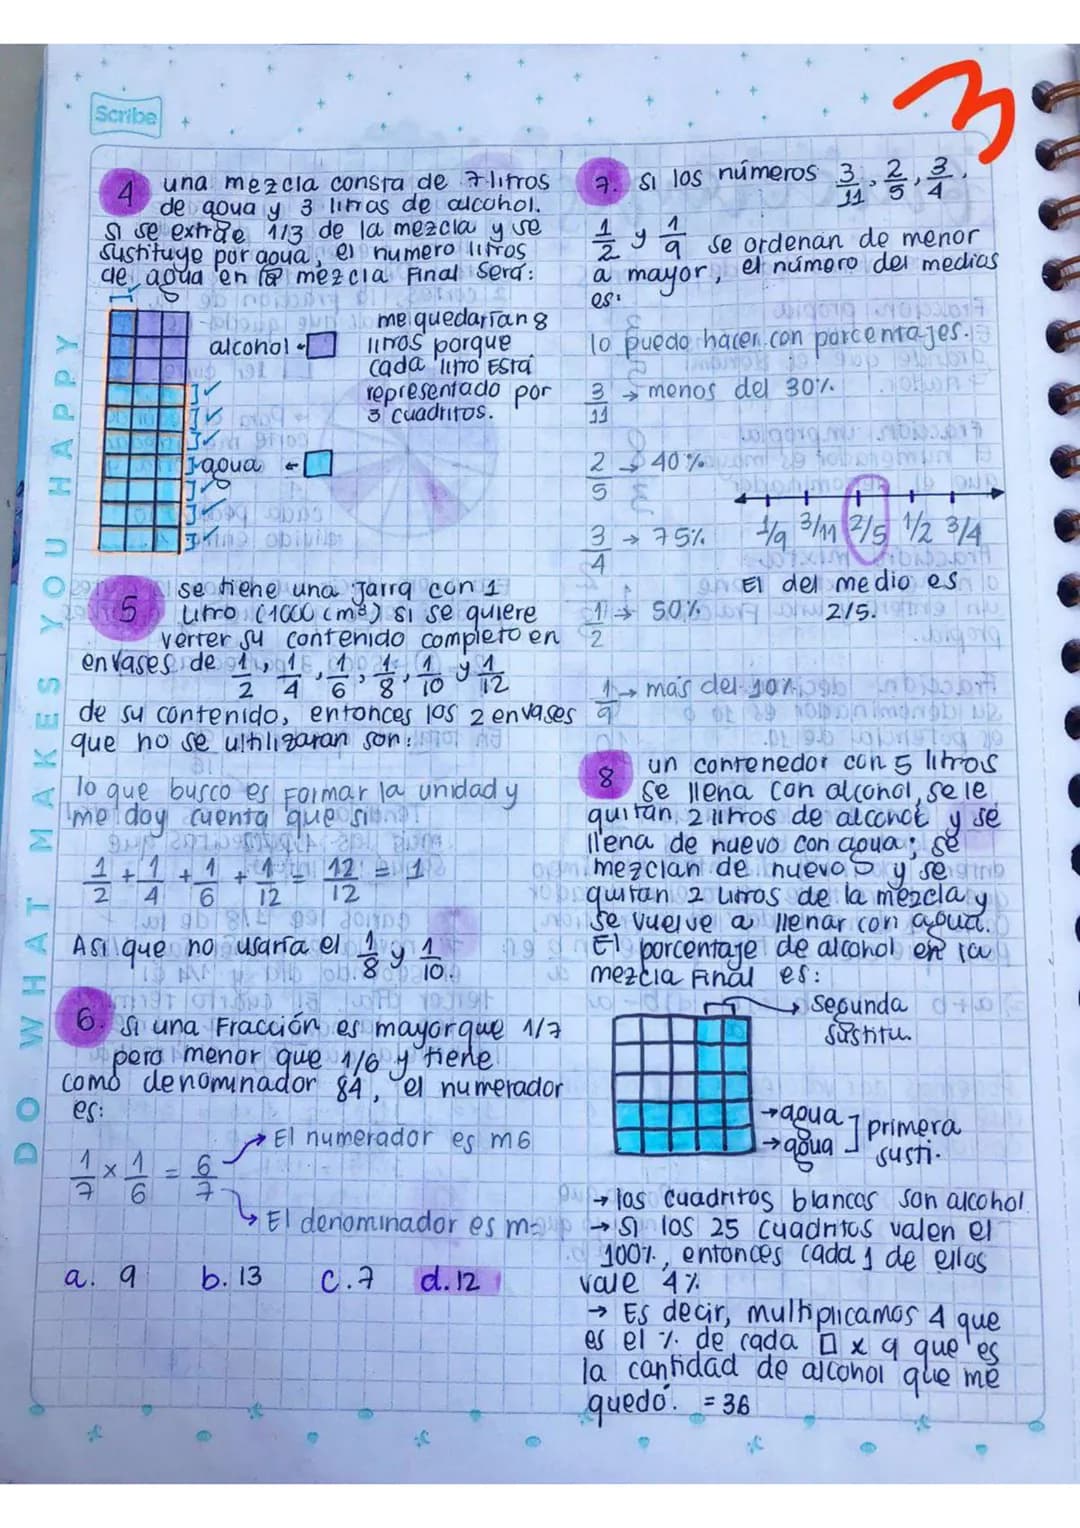 3
Scribe
DO WHAT MAKES YOU HAPPY
4 una mezcla consta de 7 litros
de agua y 3 litras de alcohol.
si se extrae 1/3 de la mezcla y se
sustituye por agua, el numero litros
de agua en la mezcla Final Será:
me quedarían 8
litros porque
cada litro Está
representado por
3 cuadritos.
alcohol
agua
5 se tiene una jarra con 1
Litro (1000 cm³) si se quiere
verter su contenido completo en
envases de 1/2, 1/4, 1/6, 1/8, 1/10 y 1/12
de su contenido, entonces los 2 envases
que no se ultilizaran son:
lo que busco es Formar la unidad y
me doy cuenta que si
1/2 + 1/4 + 1/6 + 1/12 = 12/12 = 1
Asi que no usaría el 1/8 y 1/10.
6. si una Fracción es mayor que 1/7
pero menor que 1/6 y tiene
como denominador 84, el numerador
es:
El numerador es m6
1/7 × 1/6 = 6/7
El denominador es m
a. 9 b. 13 c. 7 d. 12
7. si los números 3/11, 2/5, 3/4,
1/2 y 1/9 se ordenan de menor
a mayor, el número del medios
es:
lo puedo hacer con porcentajes.
3/11 → menos del 30%.
2/5 → 40%
3/4 → 75%
1/2 → 50%
1/9 → más del 10%
1/9 3/11 2/5 1/2 3/4
El del medio es
2/5.
8 un contenedor con 5 litros
se llena con alcohol, se le
quitan 2 litros de alcohol y se
llena de nuevo con agua; se
mezclan de nuevo y se
quitan 2 litros de la mezcla y
se vuelve a llenar con agua.
El porcentaje de alcohol en la
mezcla Final es:
→ segunda
sustitu.
→ agua
→ agua
primera
susti.
→ los cuadritos blancos son alcohol
→ si los 25 cuadritos valen el
100%, entonces cada 1 de ellos
vale 4%
→ Es decir, multiplicamos 4 que
es el % de cada □ x 9 que es
la cantidad de alcohol que me
quedó. = 36